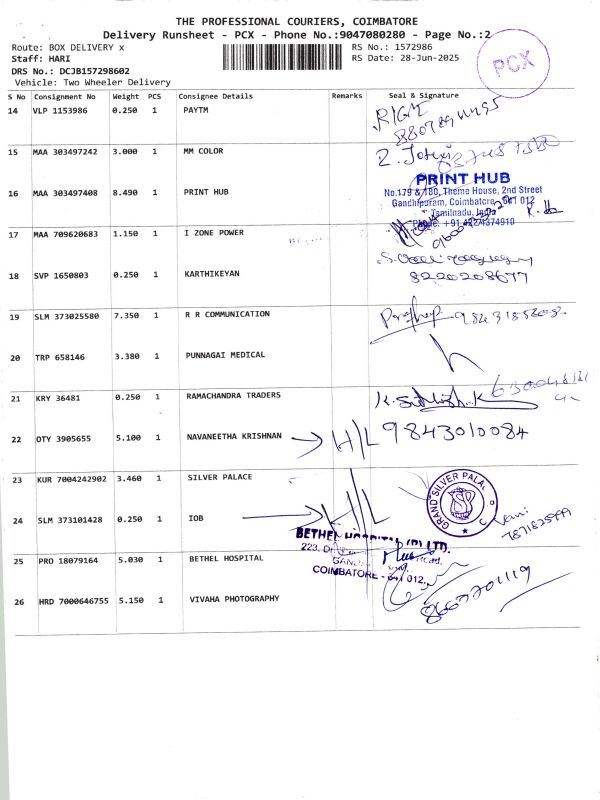 THE PROFESSIONAL COURIERS, COIMBATORE
Delivery Runsheet - PCX - Phone No.:9047080280 - Page No.:2
Route: BOX DELIVERY x
RS No.: 1572986
Staff: HARI
RS Date: 28-Jun-2025
DRS No.: DCJB157298602
Vehicle: Two Wheeler Delivery
PCX
S No Consignment No Weight PCS Consignee Details Remarks Seal & Signature
14 VLP 1153986 0.250 1 PAYTM
15 MAA 303497242 3.000 1 MM COLOR
16 MAA 303497408 8.490 1 PRINT HUB
PRINT HUB
No.179 & 180, Thema House, 2nd Street
Gandhipuram, Coimbatore - 641 012
Tamilnadu, India
Phone: +91 4224374910
17 MAA 709620683 1.150 1 I ZONE POWER
18 SVP 1650803 0.250 1 KARTHIKEYAN
8220208677
19 SLM 373025580 7.350 1 R R COMMUNICATION
20 TRP 658146 3.380 1 PUNNAGAI MEDICAL
21 KRY 36481 0.250 1 RAMACHANDRA TRADERS
22 OTY 3905655 5.100 1 NAVANEETHA KRISHNAN H/L 9843010084
23 KUR 7004242902 3.460 1 SILVER PALACE
GRAND SILVER PALAC
24 SLM 373101428 0.250 1 IOB H/L
BETHEL HOSPITAL (P) LTD.
223, Dr
COIMBATORE - 641 012.
25 PRO 18079164 5.030 1 BETHEL HOSPITAL
26 HRD 7000646755 5.150 1 VIVAHA PHOTOGRAPHY